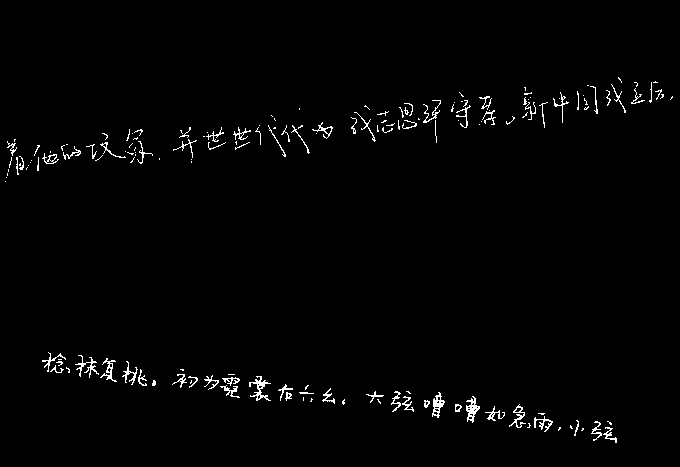 着他的坟冢,并世世代代为戎志思祥守墓。新中国成立后,
捻抹复挑。初为霓裳右六幺,大弦嘈嘈如急雨,小弦